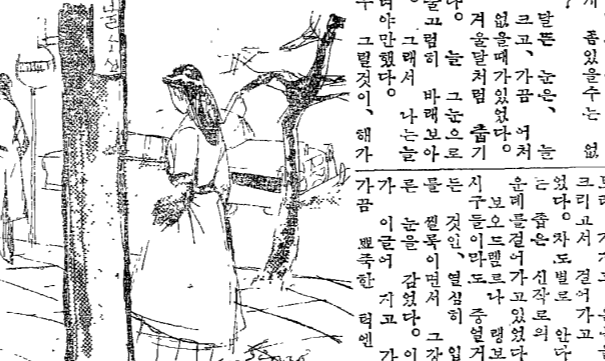 좀있을수는 없
?
달뜬 눈은, 늘
크고, 가끔 어처
없을때가있었다。
겨울달처럼 춥기
다。 늘 그눈으로
물끄럼히 바래보아
。 그래서 나는늘
려야만했다。
그럴것이, 해가
크리고서 걸어가고
었다。차도별로 안다
는 좁은 신작로의
운데를걸어가고있었다
보오드렐르나 랭보
시구들이라도 중얼거
는 것인、열심히 입
를 씰룩이면서 그
른 눈을 감었다。이
가 이글어 지고 가
가끔 뾰죽한 턱엔